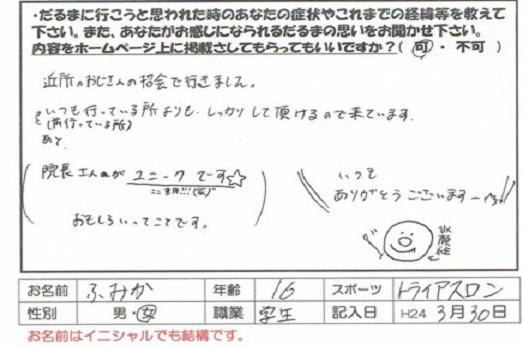 ・だるまに行こうと思われた時のあなたの症状やこれまでの経緯等を教えて
下さい。また、あなたがお感じになられるだるまの思いをお聞かせ下さい。
内容をホームページ上に掲載させてもらってもいいですか?( 可 ・ 不可 )
近所のおじさんの招会で行きました。
いつも行っている所よりも、しっかりして頂けるので来ています。
(前行っている所)
あと、
院長さんが ユニークです☆
おもしろいってことです。
いつも
ありがとうございます
似顔絵
お名前 ふみか 年齢 16 スポーツ トライアスロン
性別 男・女 職業 学生 記入日 H24 3月30日
お名前はイニシャルでも結構です。